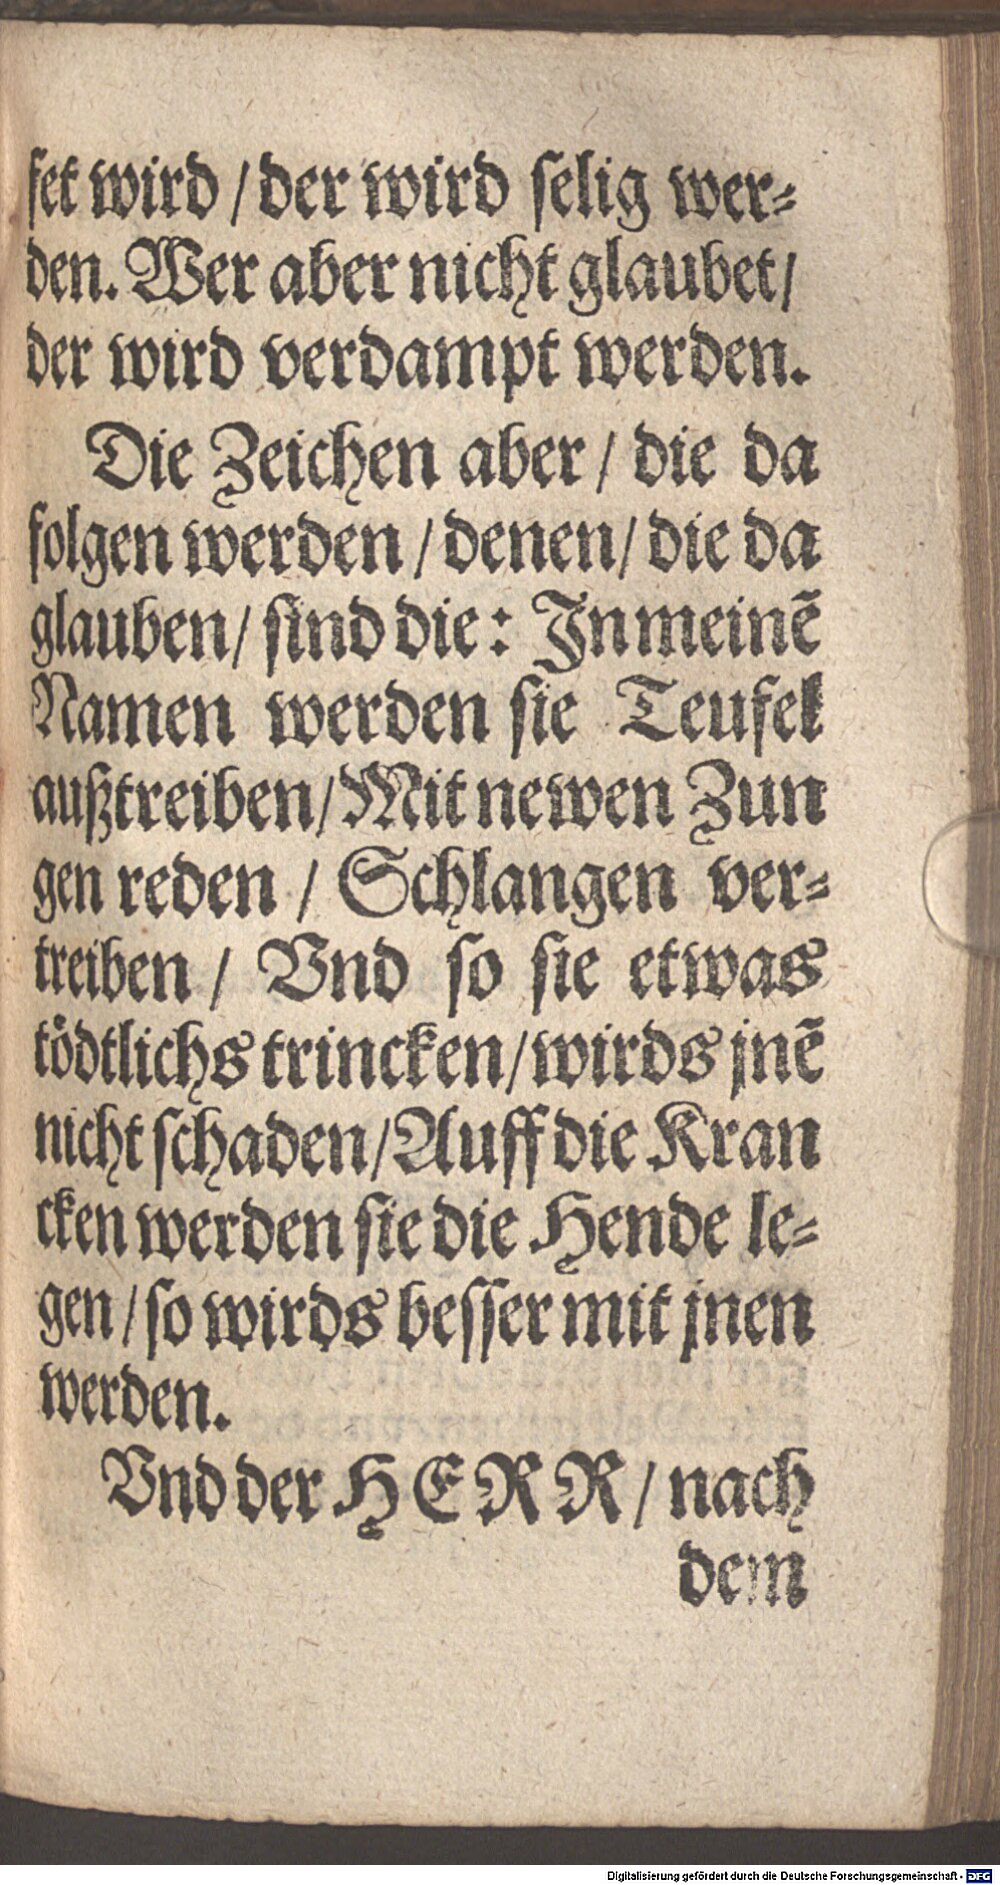 fet wird / der wird selig wer-
den. Wer aber nicht glaubet /
der wird verdampt werden.
Die Zeichen aber / die da
folgen werden / denen / die da
glauben / sind die: In meinẽ
Namen werden sie Teufel
außtreiben / Mit newen Zun
gen reden / Schlangen ver-
treiben / Vnd so sie etwas
tödtlichs trincken / wirds jnẽ
nicht schaden / Auff die Kran
cken werden sie die Hende le-
gen / so wirds besser mit jnen
werden.
Vnd der HERR / nach
dem
Digitalisierung gefördert durch die Deutsche Forschungsgemeinschaft - DFG